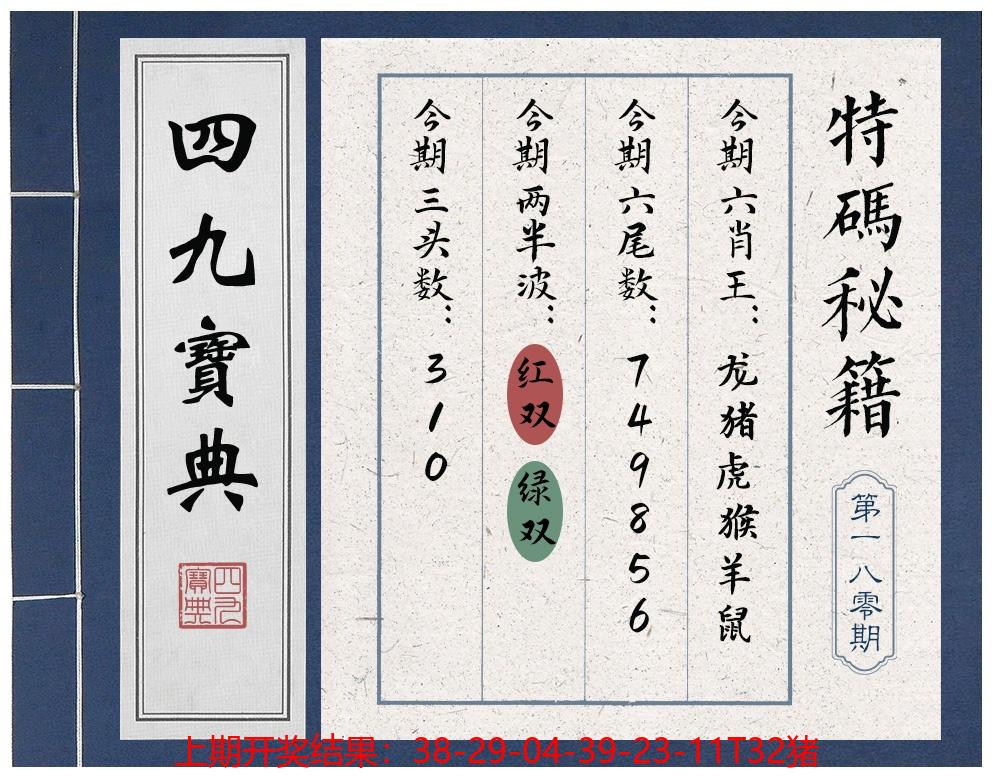 特碼秘籍
第一八零期
今期六肖王：龙猪虎猴羊鼠
今期六尾数：749856
今期两半波：红双 绿双
今期三头数：310
四九寶典
四九寶典
上期开奖结果：38-29-04-39-23-11T32猪